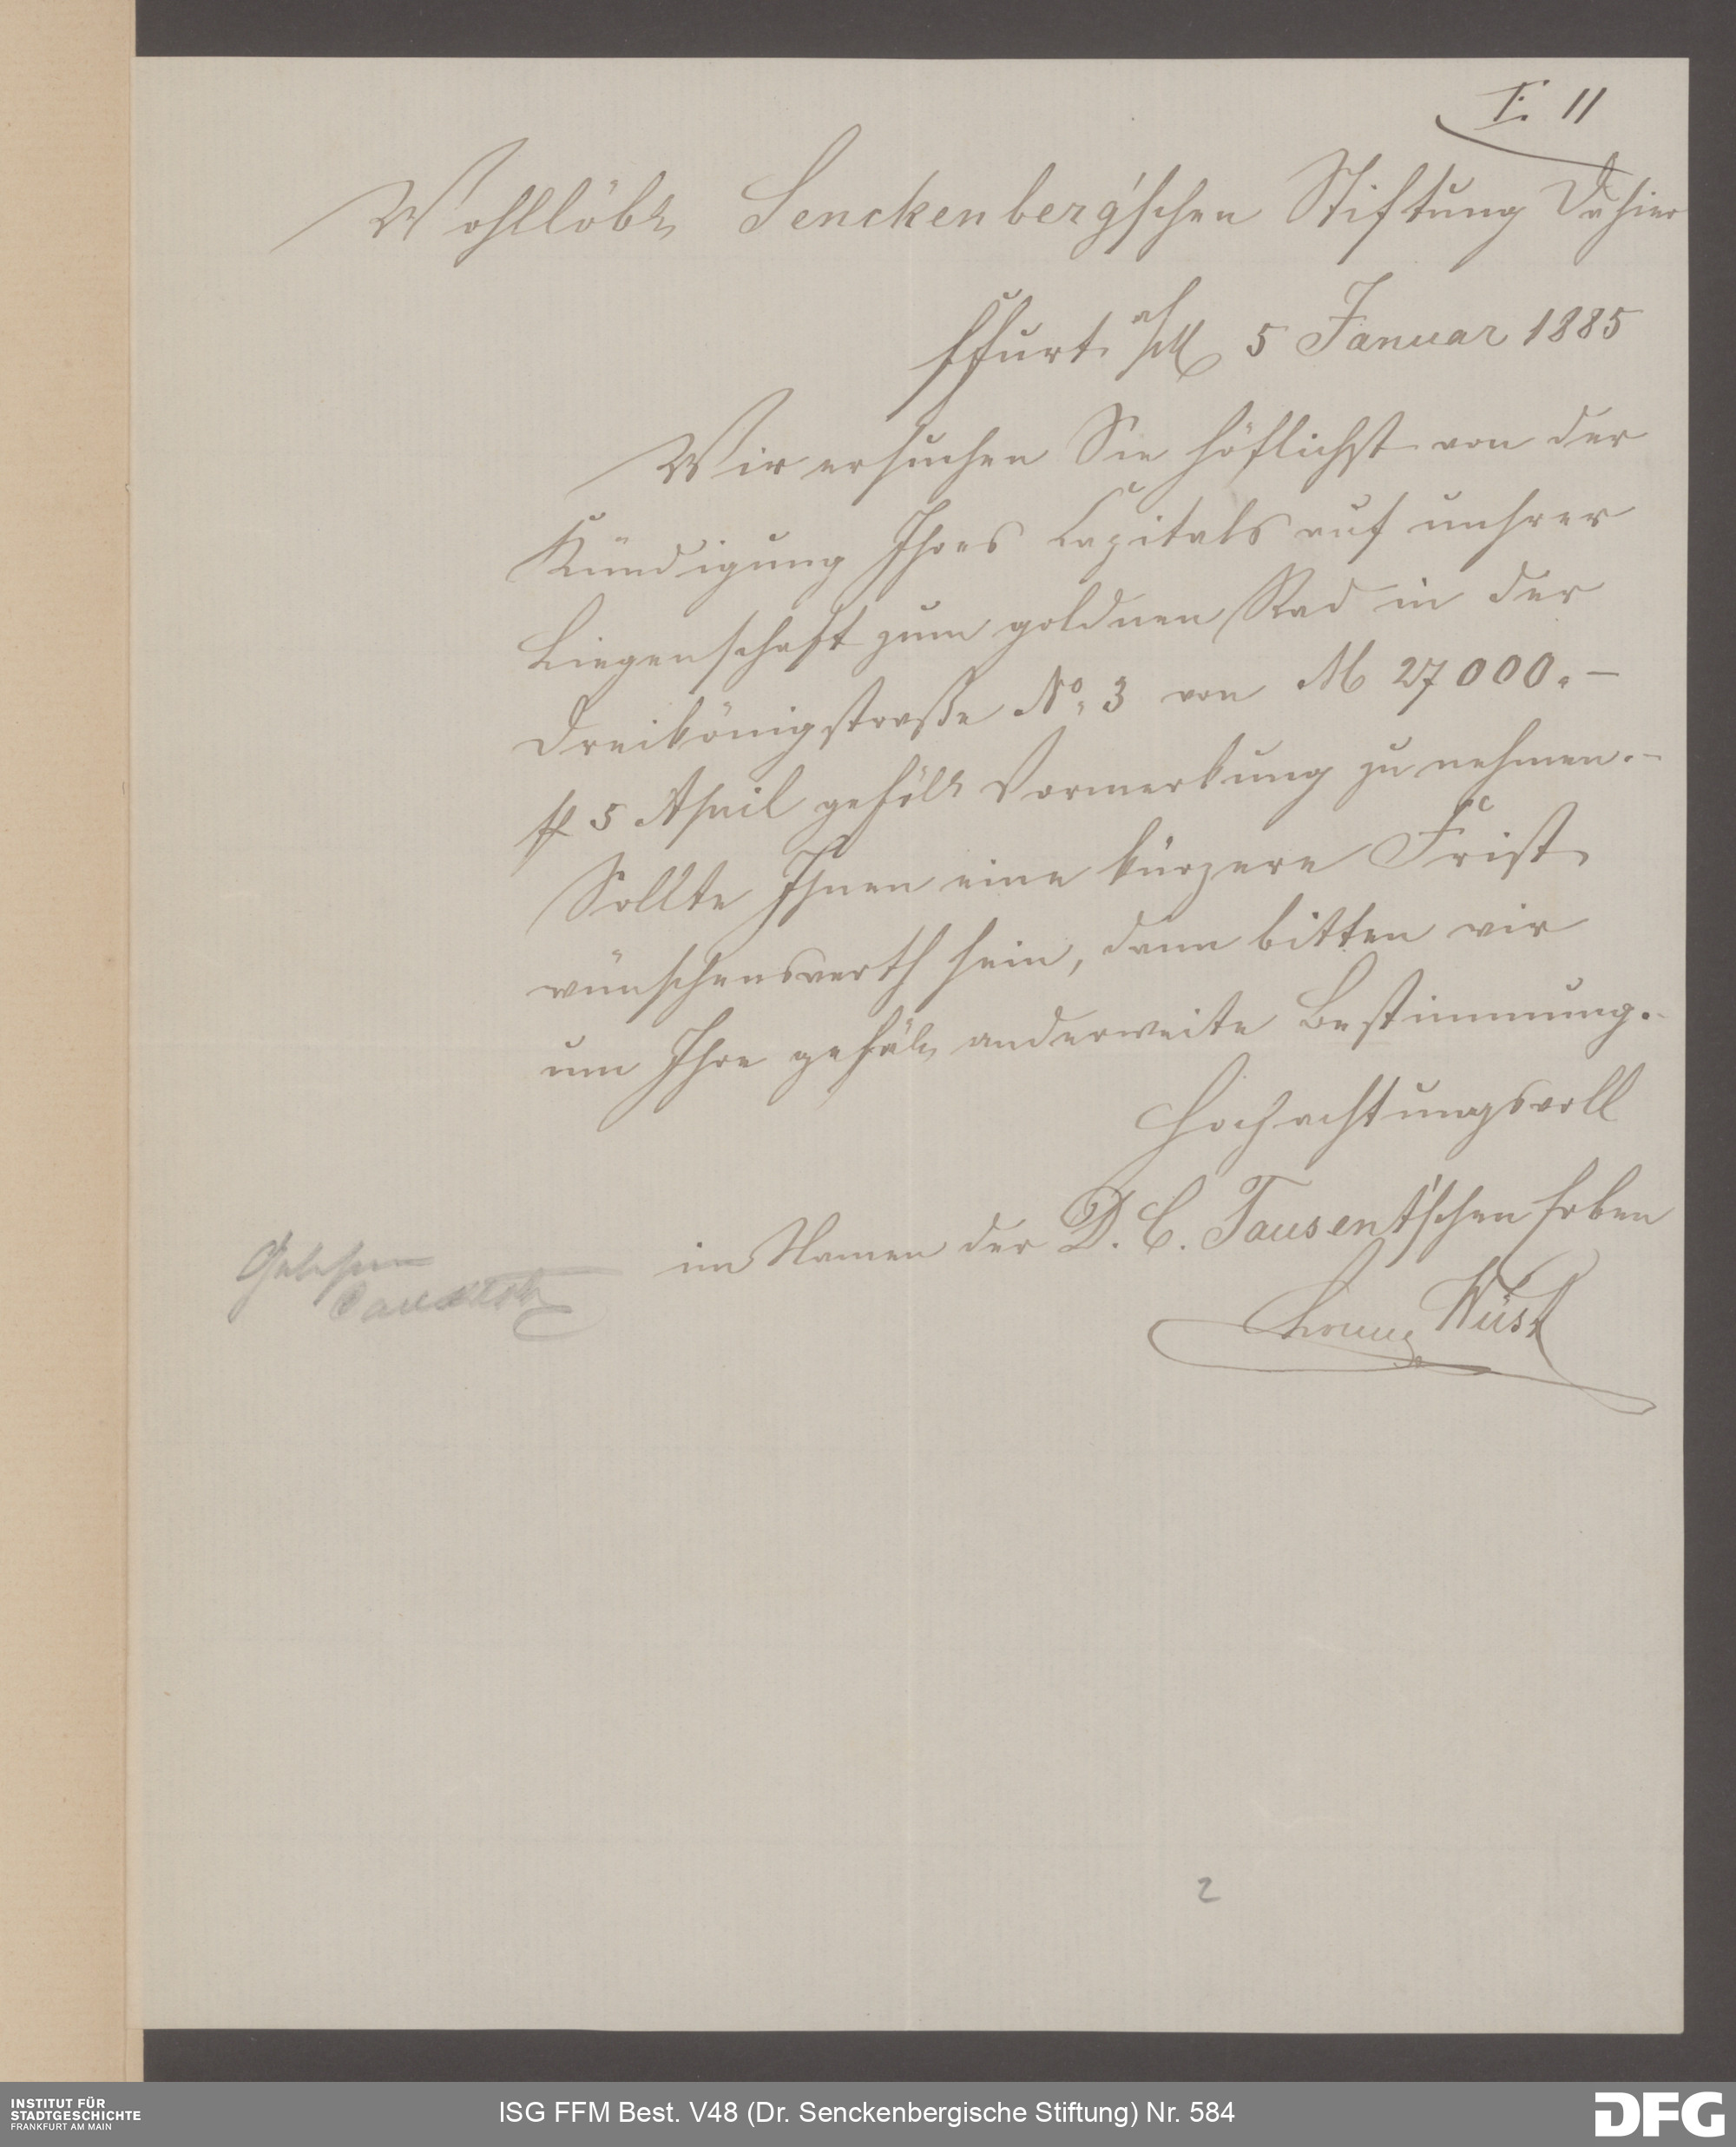 I. 11
Wohllöbl. Senckenberg'schen Stiftung Dahier
Ffurt a/M 5 Januar 1885
Wir ersuchen Sie höflichst von der
Kündigung Ihres Capitals auf unsrer
Liegenschaft zum goldnen Rad in der
Dreikönigstraße No. 3 von M 27000.–
p 5 April gefäll. Vormerkung zu nehmen.–
Sollte Ihnen eine kürzere Frist
wünschenswerth sein, dann bitten wir
um Ihre gefäll. anderweite Bestimmung.–
Hochachtungsvoll
im Namen der D. C. Tausent'schen Erben
Wüst
Gelesen
2
INSTITUT FÜR
STADTGESCHICHTE
FRANKFURT AM MAIN
ISG FFM Best. V48 (Dr. Senckenbergische Stiftung) Nr. 584
DFG